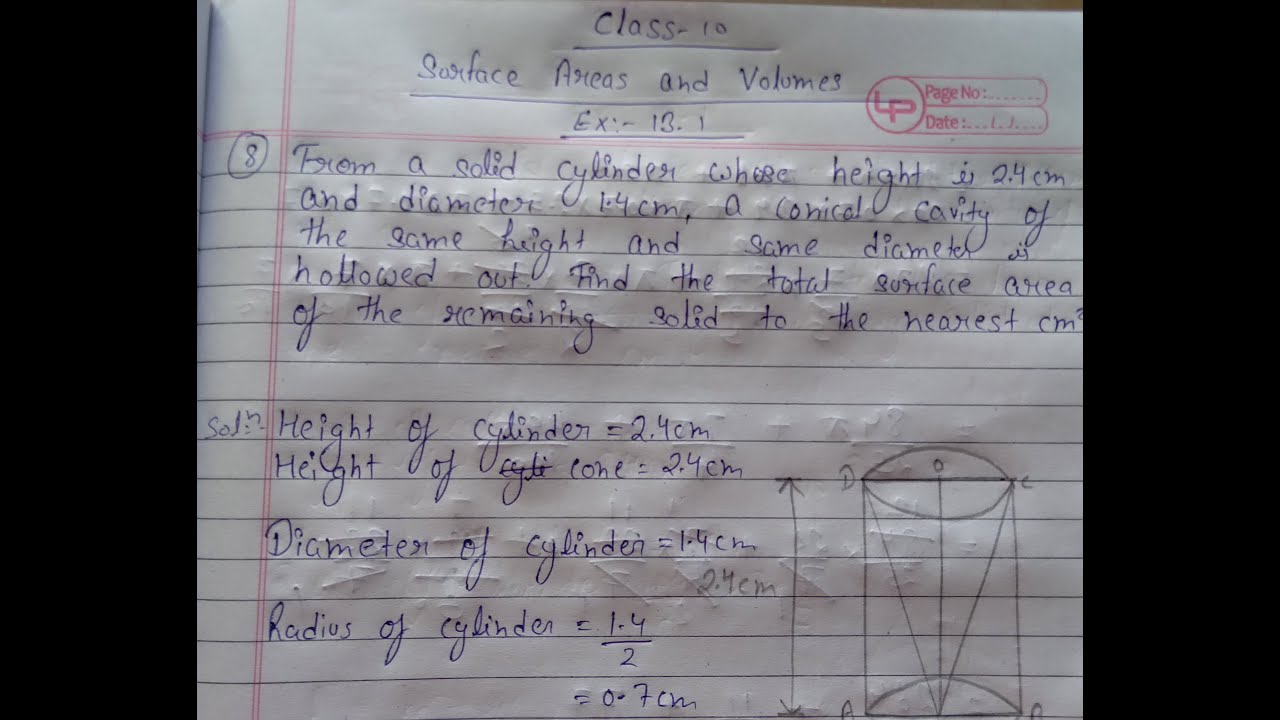 Class-10
Surface Areas and Volumes
LP
Page No:.......
Date:.../.../....
Ex:- 13.1
8 From a solid cylinder whose height is 2.4 cm
and diameter 1.4 cm, a conical cavity of
the same height and same diameter is
hollowed out. Find the total surface area
of the remaining solid to the nearest cm²
Solⁿ:- Height of cylinder = 2.4 cm
Height of cyli cone = 2.4 cm
D O C
Diameter of cylinder = 1.4 cm
2.4 cm
Radius of cylinder = 1.4
2
= 0.7 cm
A